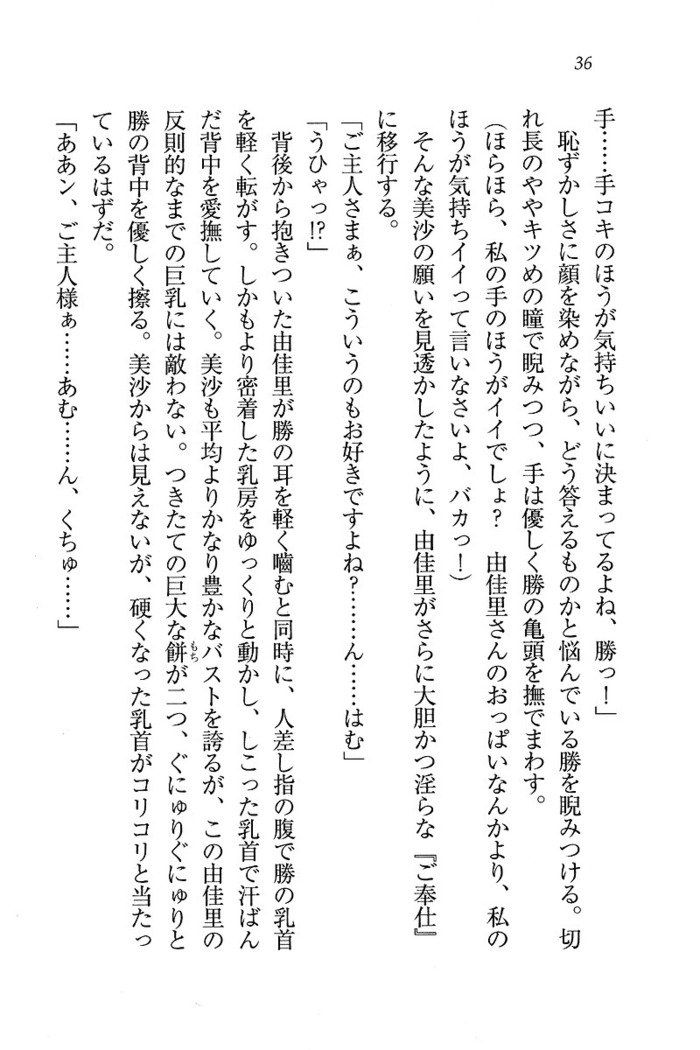 36
手……手コキのほうが気持ちいいに決まってるよね、勝っ！」
　恥ずかしさに顔を染めながら、どう答えるものかと悩んでいる勝を睨みつける。切
れ長のややキツめの瞳で睨みつつ、手は優しく勝の亀頭を撫でまわす。
（ほらほら、私の手のほうがイイでしょ？　由佳里さんのおっぱいなんかより、私の
ほうが気持ちイイって言いなさいよ、バカっ！）
　そんな美沙の願いを見透かしたように、由佳里がさらに大胆かつ淫らな『ご奉仕』
に移行する。
「ご主人さまぁ、こういうのもお好きですよね？………ん……はむ」
「うひゃっ!?」
　背後から抱きついた由佳里が勝の耳を軽く嚙むと同時に、人差し指の腹で勝の乳首
を軽く転がす。しかもより密着した乳房をゆっくりと動かし、しこった乳首で汗ばん
だ背中を愛撫していく。美沙も平均よりかなり豊かなバストを誇るが、この由佳里の
反則的なまでの巨乳には敵わない。つきたての巨大な餅もちが二つ、ぐにゅりぐにゅりと
勝の背中を優しく擦る。美沙からは見えないが、硬くなった乳首がコリコリと当たっ
ているはずだ。
「ああン、ご主人様ぁ……あむ……ん、くちゅ……」